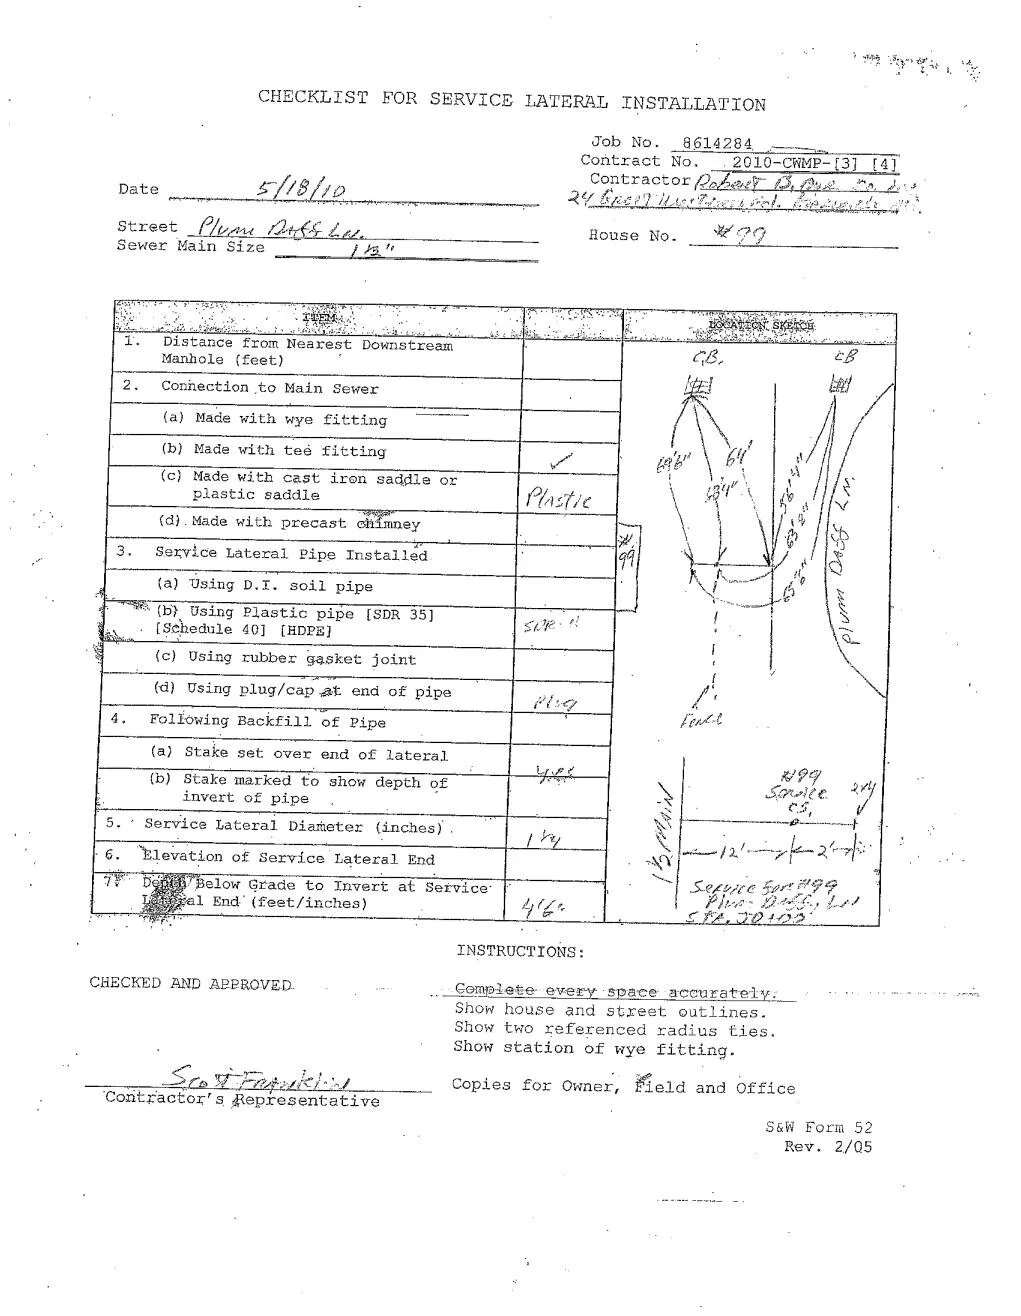 CHECKLIST FOR SERVICE LATERAL INSTALLATION
Job No. 8614284
Contract No. 2010-CWMP-[3] [4]
Contractor Robert B. Our Co. Inc.
24 Great Western Rd. Harwich
Date 5/18/10
Street Plum Daff Ln.
Sewer Main Size 1½"
House No. #99
ITEM
LOCATION SKETCH
1. Distance from Nearest Downstream
Manhole (feet)
2. Connection to Main Sewer
(a) Made with wye fitting
(b) Made with tee fitting ✓
(c) Made with cast iron saddle or
plastic saddle Plastic
(d) Made with precast chimney
3. Service Lateral Pipe Installed
(a) Using D.I. soil pipe
(b) Using Plastic pipe [SDR 35]
[Schedule 40] [HDPE] SDR 11
(c) Using rubber gasket joint
(d) Using plug/cap at end of pipe Plug
4. Following Backfill of Pipe
(a) Stake set over end of lateral
(b) Stake marked to show depth of
invert of pipe yes
5. Service Lateral Diameter (inches) 1¼
6. Elevation of Service Lateral End
7. Depth Below Grade to Invert at Service
Lateral End (feet/inches) 4'6"
C.B. CB
69'6" 64' 56'4"
63'4" 63'2"
#99
65'6"
Plum Daff Ln.
Fence
#99
Service 2x4
C.S.
1½ MAIN
12' 2'
Service For #99
Plum Daffy Ln
STA. 20+00
INSTRUCTIONS:
CHECKED AND APPROVED
Complete every space accurately.
Show house and street outlines.
Show two referenced radius ties.
Show station of wye fitting.
Scott Franklin
Contractor's Representative
Copies for Owner, Field and Office
S&W Form 52
Rev. 2/05